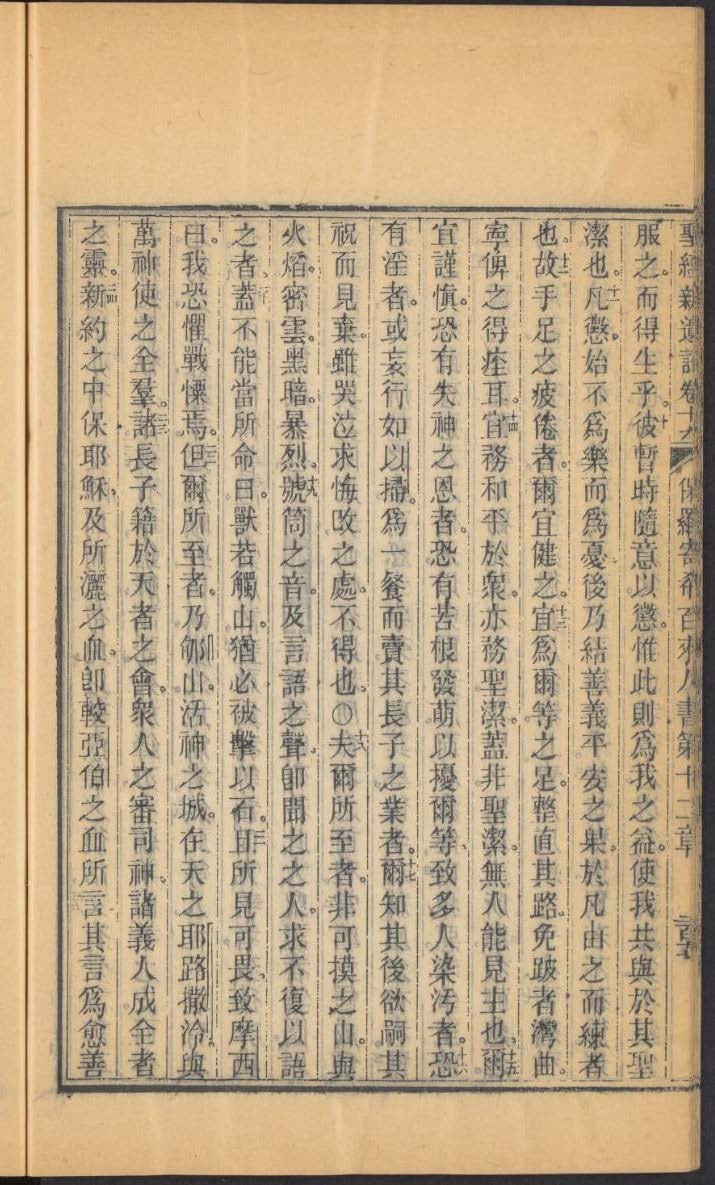 聖經新遺詔卷十九 保羅寄希百來人書第十二章
服之而得生乎。十彼暫時隨意以懲。惟此則爲我之益。使我共與於其聖
潔也。十一凡懲。始不爲樂而爲憂。後乃結善義平安之果。於凡由之而練者
也。十二故手足之疲倦者。爾宜健之。十三宜爲爾等之足。整直其路。免跛者灣曲。
寧俾之得痊耳。十四宜務和平於衆。亦務聖潔。蓋非聖潔。無人能見主也。十五爾
宜謹慎。恐有失神之恩者。恐有苦根發萌以擾爾等、致多人染汚者。十六恐
有淫者。或妄行如以掃。爲一餐而賣其長子之業者。十七爾知其後欲嗣其
祝而見棄。雖哭泣求悔改之處。不得也。〇十八夫爾所至者。非可摸之山。與
火焰。密雲。黑暗。暴烈。十九號筒之音。及言語之聲。卽聞之之人。求不復以語
之者。二十蓋不能當所命曰。獸若觸山。猶必被擊以石。二一且所見可畏、致摩西
曰。我恐懼戰慄焉。二二但爾所至者。乃郇山。活神之城。在天之耶路撒冷。與
萬神使之全羣。二三諸長子籍於天者之會。衆人之審司神。諸義人成全者
之靈。二四新約之中保耶穌。及所灑之血。卽較亞伯之血所言其言爲愈善